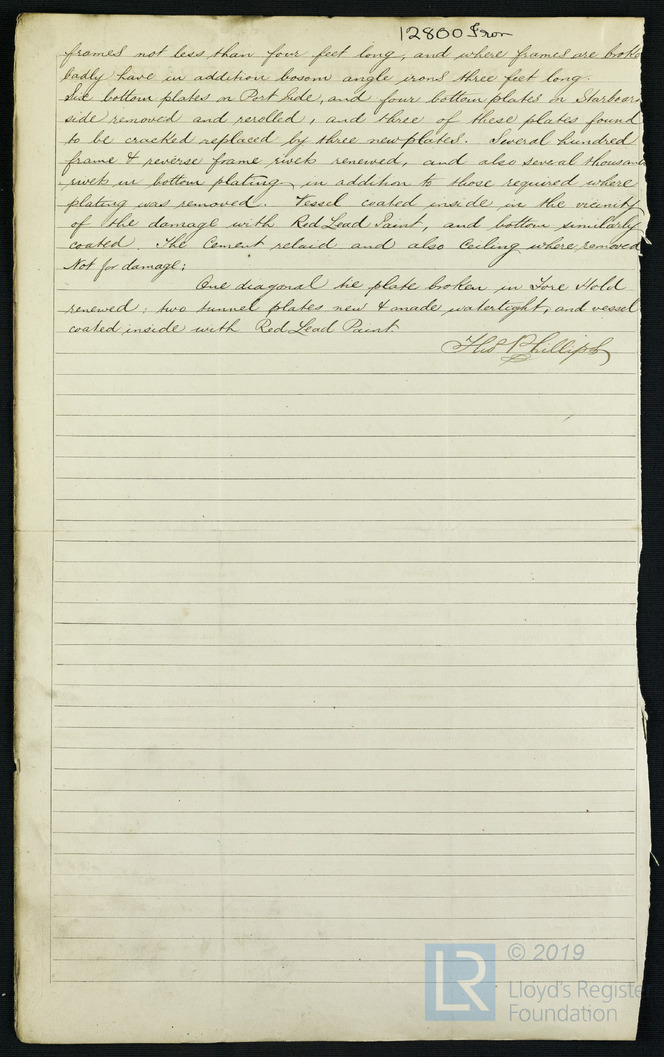 12800 Iron
frames not less than four feet long, and where frames are broke
badly have in addition bosom angle irons three feet long.
Six bottom plates on Port side, and four bottom plates on Starboar
side removed and rerolled, and three of these plates found
to be cracked replaced by three new plates. Several hundred
frame & reverse frame rivets renewed, and also several thousan
rivets in bottom plating, in addition to those required where
plating was removed. Vessel coated inside in the vicinity
of the damage with Red Lead Paint, and bottom similarly
coated. The Cement relaid and also Ceiling where removed
Not for damage;
One diagonal tie plate broken in Fore Hold
renewed; two tunnel plates new & made watertight, and vessel
coated inside with Red Lead Paint.
Thos Phillips
LR
© 2019
Lloyd's Register
Foundation